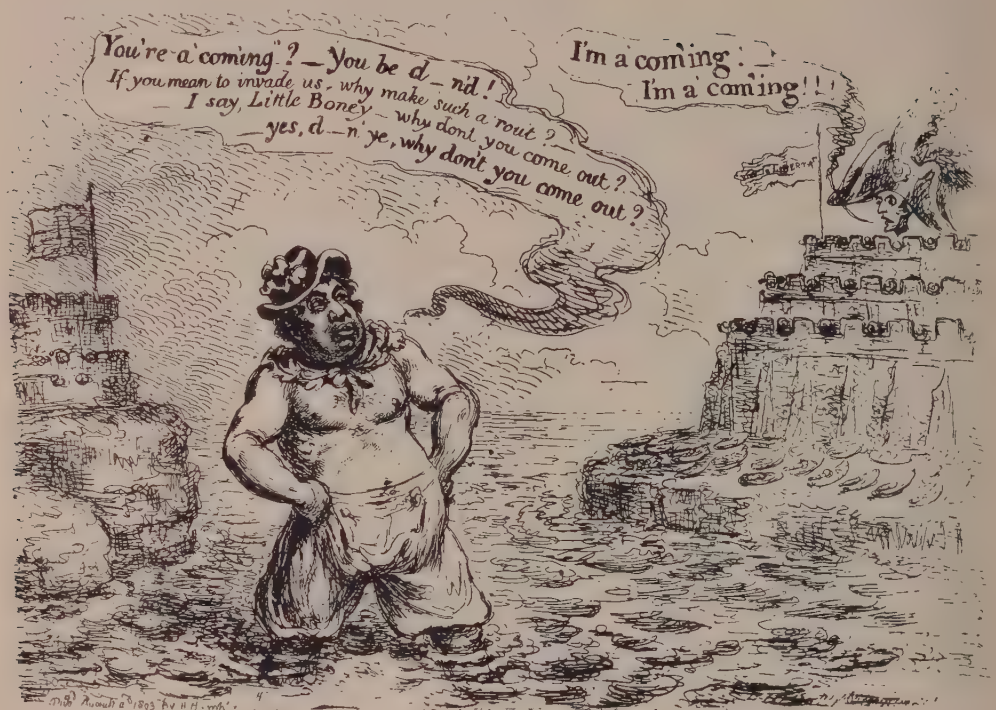 You're a coming? — You be d—nd!
If you mean to invade us, why make such a rout?
— I say, Little Boney — why don't you come out?
— yes, d—n ye, why don't you come out?
I'm a coming!
I'm a coming!!!
August 1803 by H.